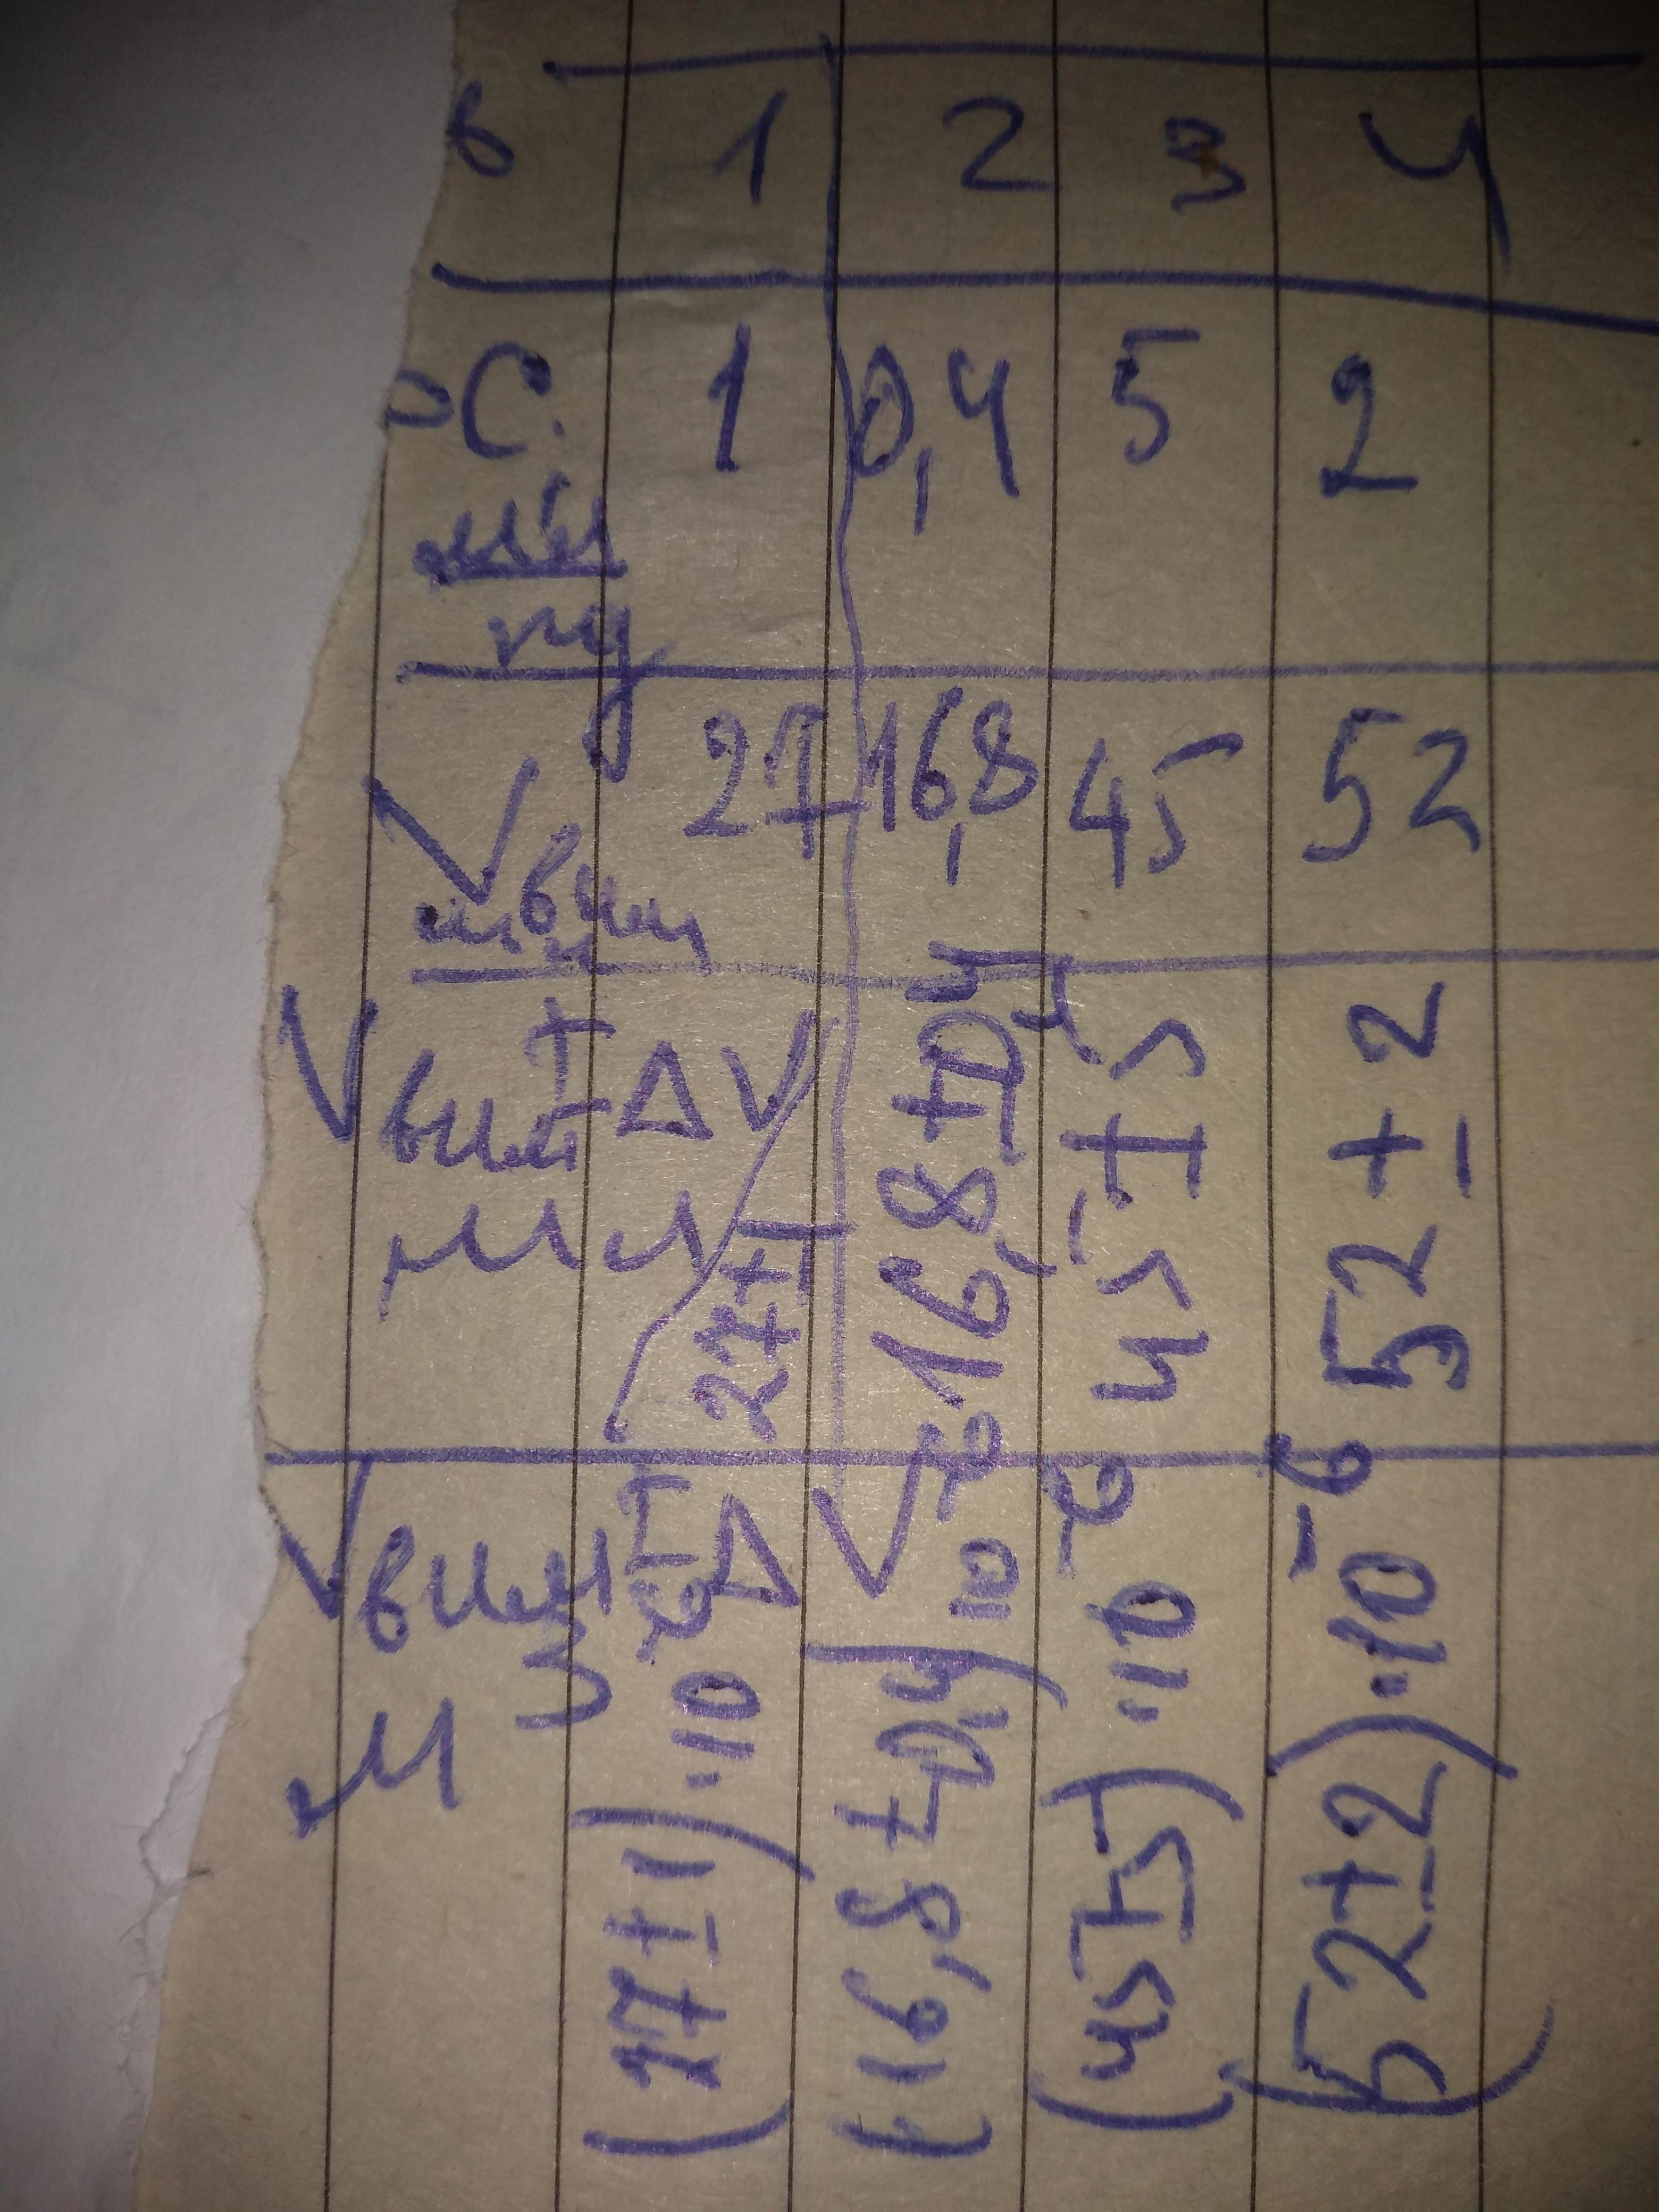 в 1 2 3 4
ᴐС. мл/под 1 0,4 5 2
Vвим мл 27 16,8 45 52
Vвим ± ΔV мл 27±1 16,8±0,4 45±5 52±2
Vвим ± ΔV м³ (27±1)·10⁻⁶ (16,8±0,4)·10⁻⁶ (45±5)·10⁻⁶ (52±2)·10⁻⁶